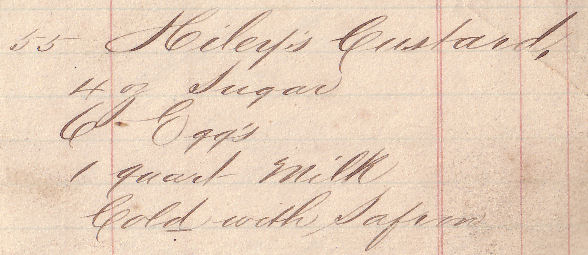 55 Hiley's Custard,
4 oz Sugar
6 Egg's
1 quart Milk
Cold with Safrn